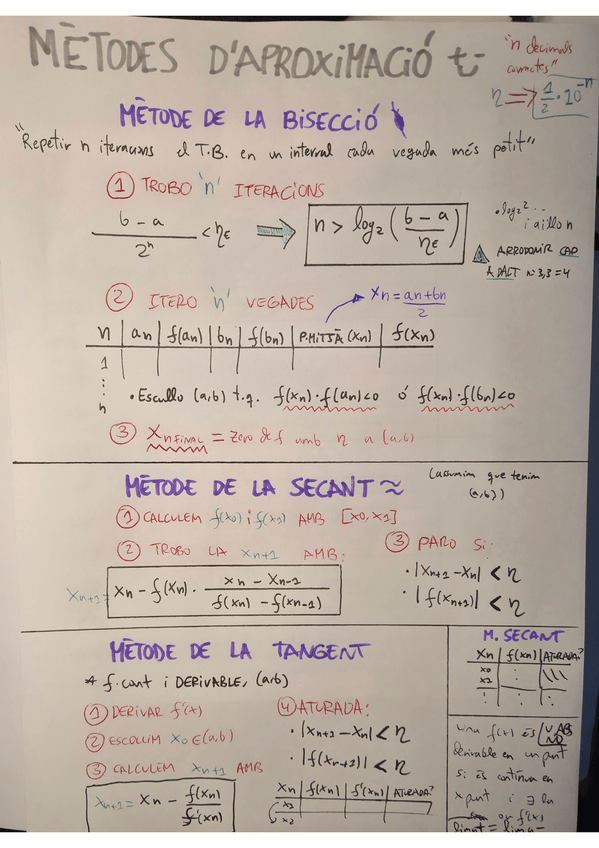 MÈTODES D'APROXIMACIÓ
"n decimals
correctes"
η => 1/2 · 10^-n
MÈTODE DE LA BISECCIÓ
"Repetir n iteracions el T.B. en un interval cada vegada més petit"
① TROBO 'n' ITERACIONS
b - a / 2^n < ηε => n > log₂ (b - a / ηε)
• log₂ 2 ...
i aïllo n
ARRODONIR CAP
A DALT n=3,3=4
② ITERO 'n' VEGADES
Xn = an+bn / 2
n | an | f(an) | bn | f(bn) | P.MITJÀ (Xn) | f(Xn)
1
⋮
n
• Escullo (a,b) t.q. f(xn)·f(an)<0 ó f(xn)·f(bn)<0
③ Xn FINAL = Zero de f amb η a (a,b)
MÈTODE DE LA SECANT ≈
(assumim que tenim
(a,b))
① CALCULEM f(x0) i f(x1) AMB [x0, x1]
② TROBO LA Xn+1 AMB:
Xn+1 = Xn - f(Xn) · Xn - Xn-1 / f(xn) - f(xn-1)
③ PARO SI:
• |Xn+1 - Xn| < η
• |f(Xn+1)| < η
MÈTODE DE LA TANGENT
* f. cont i DERIVABLE, (a,b)
① DERIVAR f'(x)
② ESCOLLIM X0 ∈ (a,b)
③ CALCULEM Xn+1 AMB
Xn+1 = Xn - f(Xn) / f'(Xn)
④ ATURADA:
• |Xn+1 - Xn| < η
• |f(Xn+1)| < η
Xn | f(Xn) | f'(Xn) | ATURADA?
X1
X2
M. SECANT
Xn | f(xn) | ATURADA?
X0
X1
⋮
una f(x) és
derivable en un punt
si és contínua en
x punt i ∃ la
f'(x)